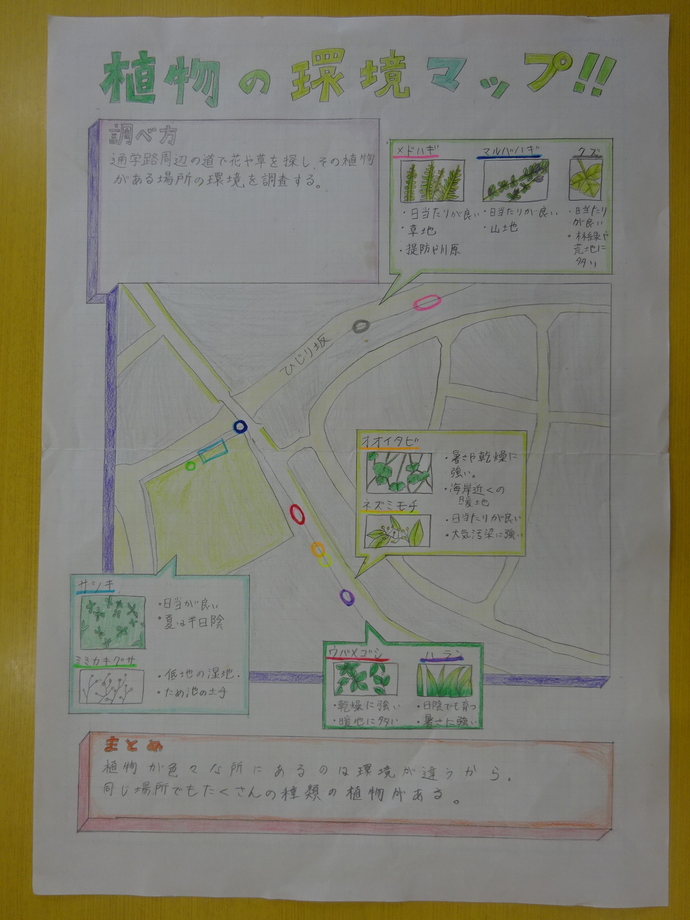 植物の環境マップ!!
調べ方
通学路周辺の道で花や草を探し、その植物
がある場所の環境を調査する。
メドハギ
・日当たりが良い
・草地
・堤防や川原
マルバハギ
・日当たりが良い
・山地
クズ
・日当たり
が良い
・林縁や
荒地に
多い
ひじり坂
オオイタビ
・暑さや乾燥に
強い。
・海岸近くの
暖地
ネズミモチ
・日当たりが良い
・大気汚染に強い
サツキ
・日当が良い
・夏は半日陰
ミミカキグサ
・低地の湿地.
・ため池の土手
ウバメガシ
・乾燥に強い
・暖地に多い
ハラン
・日陰でも育つ
・暑さに強い
まとめ
植物が色々な所にあるのは環境が違うから。
同じ場所でもたくさんの種類の植物がある。